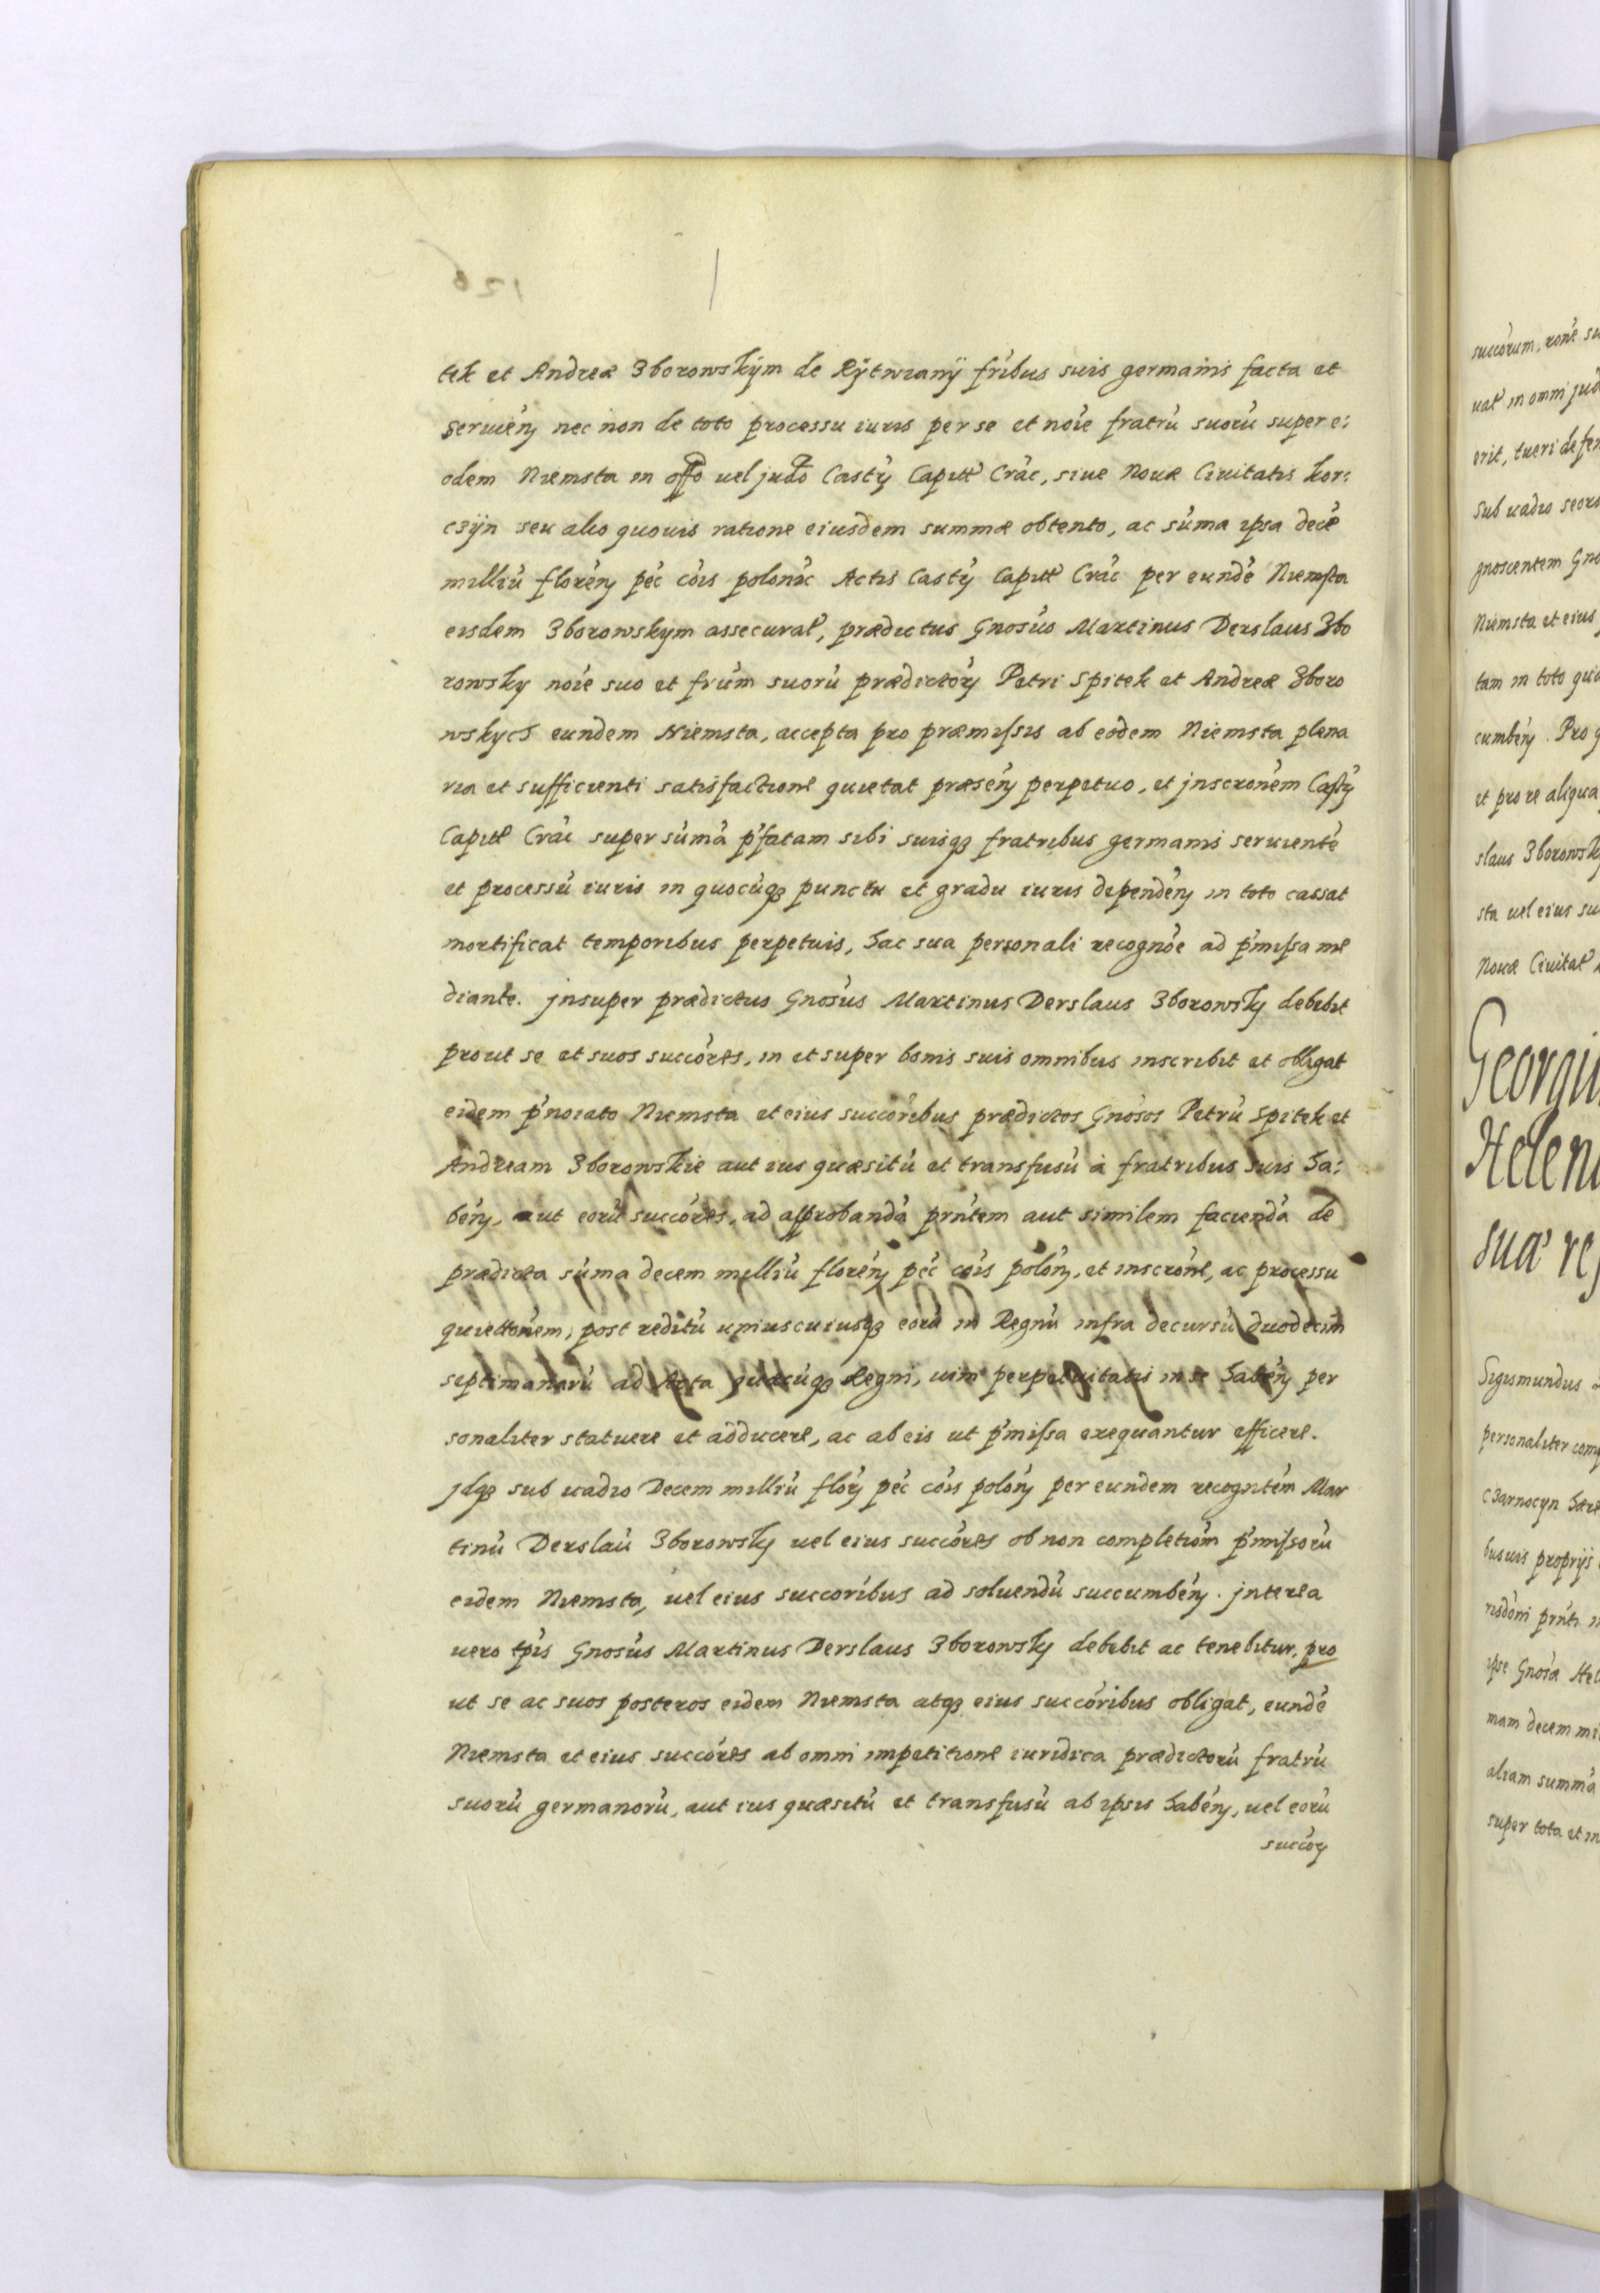 tek et Andreæ Zborowskÿm de Rÿtwianÿ fribus suis germanis facta et
seruien̄ nec non de toto processu iuris per se et noie fratrū suorū super e:
odem Niemsta in offo uel judo Castrꝫ Capitl Crac, siue Nouæ Ciuitatis kor:
czÿn seu alio quouis ratione eiusdem summæ obtento, ac sūma ipsa decē
milliū floren̄ pec cois polonic Actis Castrꝫ Capitl Crac per eundē Niemsta
eisdem Zborowskym assecurat, prædictus Gnosus Martinus Derslaus Zbo
rowsky noie suo et frum suorū prædictorꝫ Petri Spitek et Andreæ Zboro
wskych eundem Niemsta, accepta pro præmissis ab eodem Niemsta plena
ria et sufficienti satisfactione quietat præsen̄ perpetuo, et jnscronem Castrꝫ
Capitl Crac super sūmā pfatam sibi suisqꝫ fratribus germanis seruientē
et processū iuris in quocūqꝫ punctu et gradu iuris dependen̄ in toto cassat
mortificat temporibus perpetuis, hac sua personali recognoe ad pmissa me
diante. jnsuper prædictus Gnosus Martinus Derslaus Zborowsky debebit
prout se et suos succores, in et super bonis suis omnibus inscribit et obligat
eidem pnoiato Niemsta et eius succoribus prædictos Gnosos Petrū Spitek et
Andream Zborowskie aut ius quæsitū et transfusū à fratribus suis ha:
ben̄, aut eorū succores, ad approbandā prntem aut similem faciendā de
prædicta sūma decem milliū floren̄ pec cois polon̄, et inscrone, ac processu
quiettonem, post reditū uniuscuiusqꝫ eorū in Regnū infra decursū duodecim
septimanarū ad Acta quæcūqꝫ Regni, uim perpetuitatis in se haben̄ per
sonaliter statuere et adducere, ac ab eis ut pmissa exequantur efficere.
jdqꝫ sub uadio Decem milliū florꝫ pec cois polon̄ per eundem recogntem Mar
tinū Derslaū Zborowsky uel eius succores ob non completiom pmissorū
eidem Niemsta, uel eius succoribus ad soluendū succumben̄. jnterea
uero tpis Gnosus Martinus Derslaus Zborowsky debebit ac tenebitur, pro
ut se ac suos posteros eidem Niemsta atqꝫ eius succoribus obligat, eundē
Niemsta et eius succores ab omni impetitione iuridica prædictorū fratrū
suorū germanorū, aut ius quæsitū et transfusū ab ipsis haben̄, uel eorū
succorꝫ
succorum, rone su
uat in omni jud
erit, tueri defen
sub uadio seors
gnoscentem Gno
Niemsta et eius
tam in toto qua
cumben̄. Pro q
et pro re aliqua
slaus Zborowsky
sta uel eius su
Nouæ Ciuitat
Georgiu
Helen
suæ res
Sigismundus
personaliter comp
Czarnocyn hære
bus uis proprijs
risdoni prnti
ipse Gnosa Hel
mam decem mil
aliam summā
super tota et in